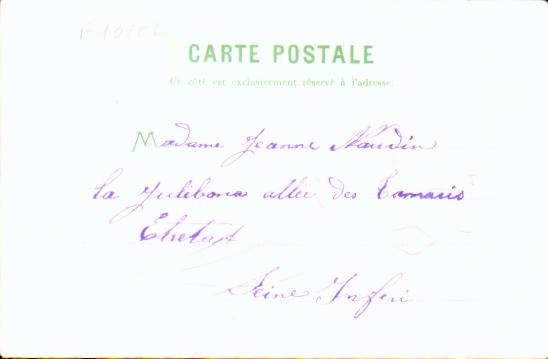 CARTE POSTALE
Ce côté est exclusivement réservé à l'adresse.
Madame Jeanne Naudin
la Julibona allée des Tamaris
Etretat
Seine Inferi